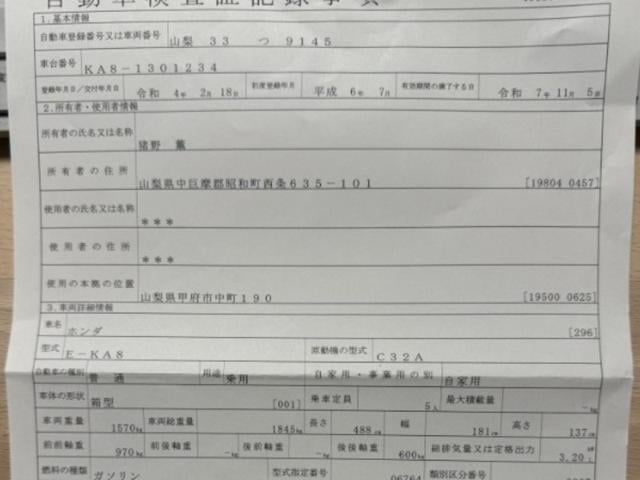 自動車検査証記録事項
1.基本情報
自動車登録番号又は車両番号 山梨 33 つ 9145
車台番号 KA8-1301234
登録年月日/交付年月日 令和 4年 2月 18日 初度登録年月 平成 6年 7月 有効期間の満了する日 令和 7年 11月 5日
2.所有者・使用者情報
所有者の氏名又は名称 猪野 薫
所有者の住所 山梨県中巨摩郡昭和町西条635-101 [19804 0457]
使用者の氏名又は名称 ***
使用者の住所 ***
使用の本拠の位置 山梨県甲府市中町190 [19500 0625]
3.車両詳細情報
車名 ホンダ [296]
型式 E-KA8 原動機の型式 C32A
自動車の種別 普通 用途 乗用 自家用・事業用の別 自家用
車体の形状 箱型 [001] 乗車定員 5人 最大積載量 -kg
車両重量 1570kg 車両総重量 1845kg 長さ 488cm 幅 181cm 高さ 137cm
前前軸重 970kg 前後軸重 -kg 後前軸重 -kg 後後軸重 600kg 総排気量又は定格出力 3.20L
燃料の種類 ガソリン 型式指定番号 06764 類別区分番号